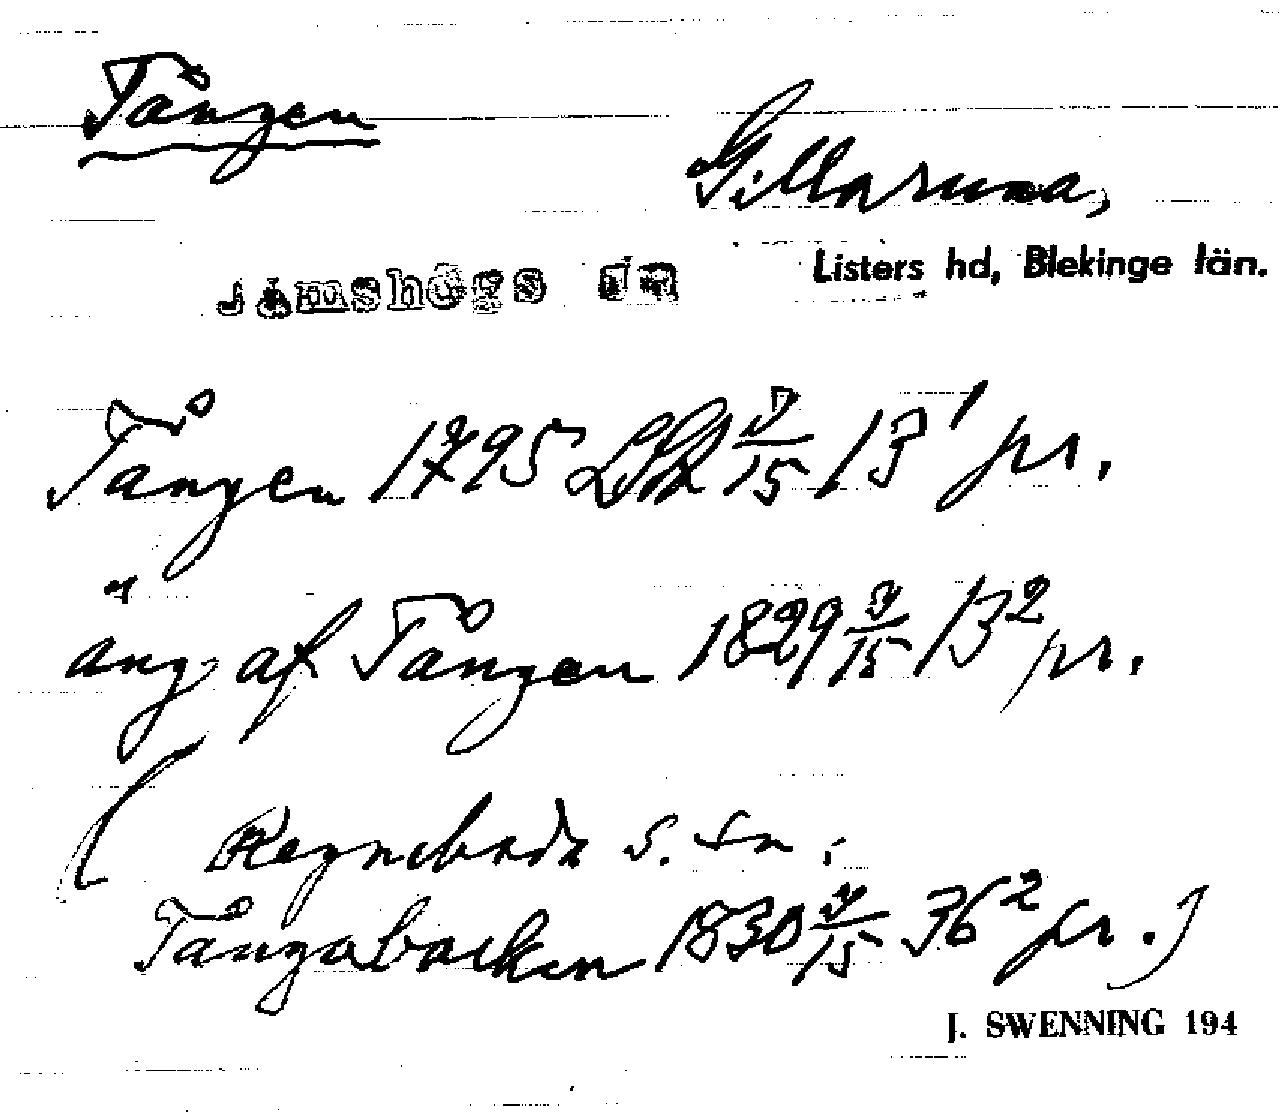 Tången
Gillaruna,
Jämshögs sn
Listers hd, Blekinge län.
Tången 1795 LSk J/15 13¹ pr.
äng af Tången 1829 J/15 13² pr.
(Regneboda s. sn.
Tångabacken 1830 J/15 36² pr.)
J. SWENNING 194